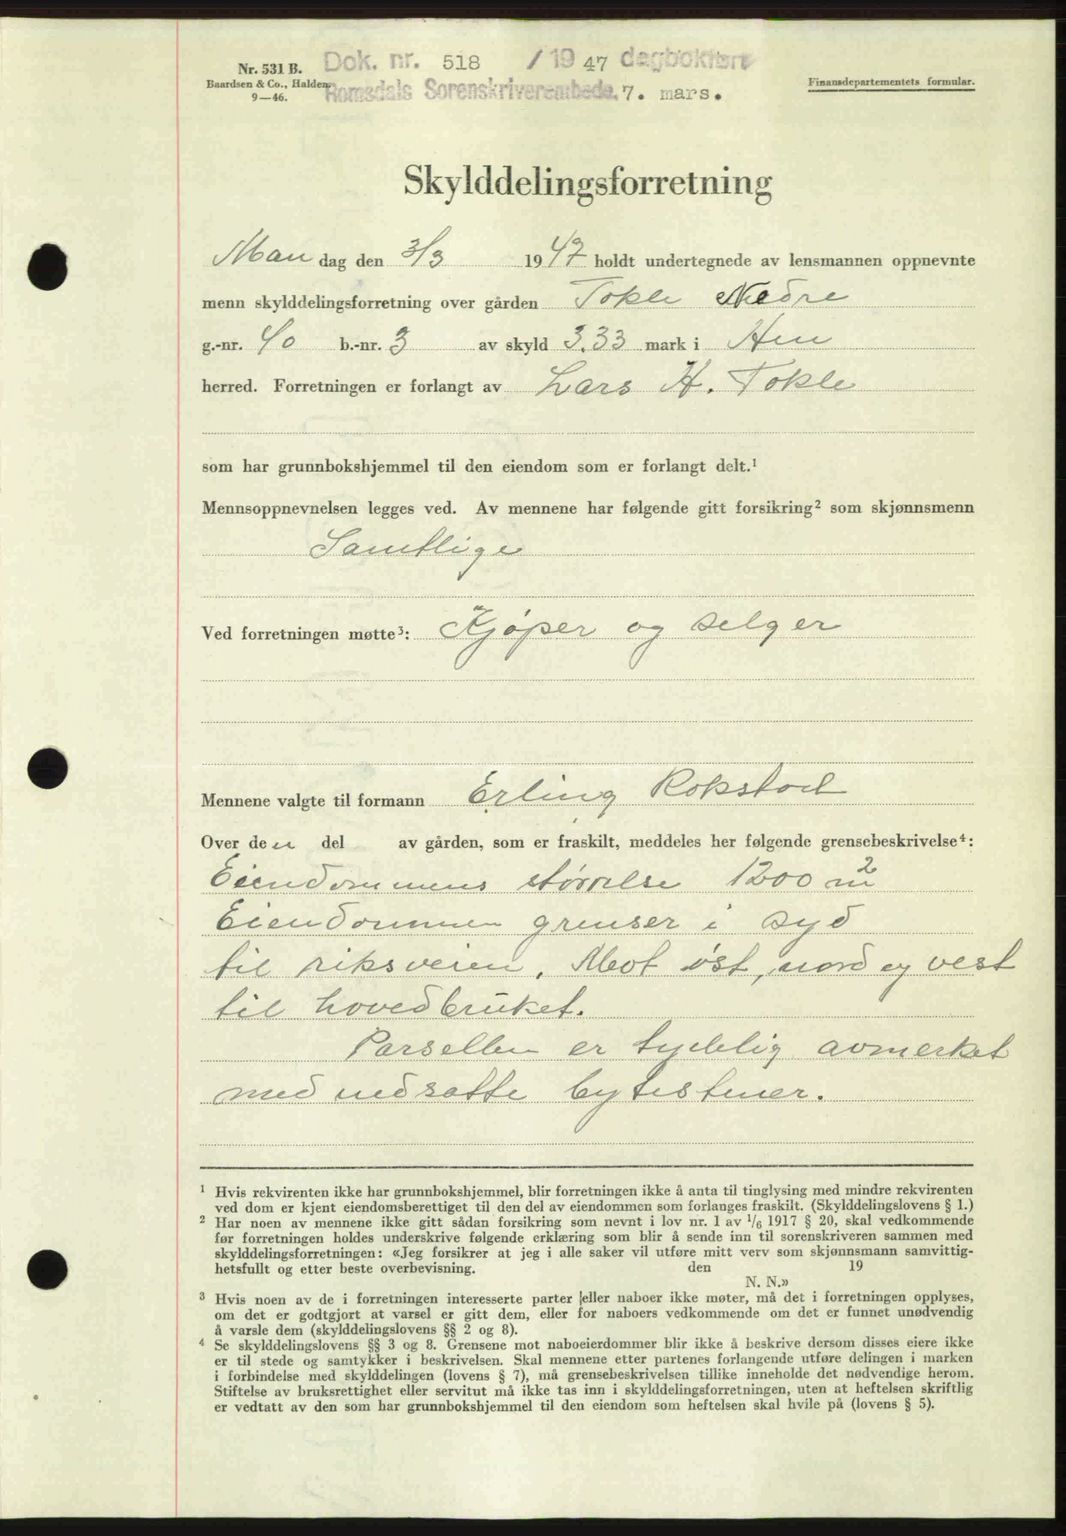 Nr. 531 B.
Baardsen & Co., Halden.
9—46.
Dok. nr. 518 / 19 47 dagbokført
Romsdals Sorenskriverembede. 7. mars.
Finansdepartementets formular.
Skylddelingsforretning
Man dag den 3/3 1947 holdt undertegnede av lensmannen oppnevnte
menn skylddelingsforretning over gården Tokle Nedre
g.-nr. 40 b.-nr. 3 av skyld 3.33 mark i Hen
herred. Forretningen er forlangt av Lars H. Tokle
som har grunnbokshjemmel til den eiendom som er forlangt delt.¹
Mennsoppnevnelsen legges ved. Av mennene har følgende gitt forsikring² som skjønnsmenn
Samtlige
Ved forretningen møtte³: Kjøper og selger
Mennene valgte til formann Erling Rokstad
Over den del av gården, som er fraskilt, meddeles her følgende grensebeskrivelse⁴:
Eiendommens størrelse 1200 m²
Eiendommen grenser i syd
til riksveien. Mot øst, nord og vest
til hovedbruket.
Parsellen er tydelig avmerket
med nedsatte bytestener.
¹ Hvis rekvirenten ikke har grunnbokshjemmel, blir forretningen ikke å anta til tinglysing med mindre rekvirenten
ved dom er kjent eiendomsberettiget til den del av eiendommen som forlanges fraskilt. (Skylddelingslovens § 1.)
² Har noen av mennene ikke gitt sådan forsikring som nevnt i lov nr. 1 av 1/6 1917 § 20, skal vedkommende
før forretningen holdes underskrive følgende erklæring som blir å sende inn til sorenskriveren sammen med
skylddelingsforretningen: «Jeg forsikrer at jeg i alle saker vil utføre mitt verv som skjønnsmann samvittig-
hetsfullt og etter beste overbevisning. den 19
N. N.»
³ Hvis noen av de i forretningen interesserte parter eller naboer ikke møter, må det i forretningen opplyses,
om det er godtgjort at varsel er gitt dem, eller for naboers vedkommende om det er funnet unødvendig
å varsle dem (skylddelingslovens §§ 2 og 8).
⁴ Se skylddelingslovens §§ 3 og 8. Grensene mot naboeierdommer blir ikke å beskrive dersom disses eiere ikke
er til stede og samtykker i beskrivelsen. Skal mennene etter partenes forlangende utføre delingen i marken
i forbindelse med skylddelingen (lovens § 7), må grensebeskrivelsen tillike inneholde det nødvendige herom.
Stiftelse av bruksrettighet eller servitut må ikke tas inn i skylddelingsforretningen, uten at heftelsen skriftlig
er vedtatt av den som har grunnbokshjemmel til den eiendom som heftelsen skal hvile på (lovens § 5).